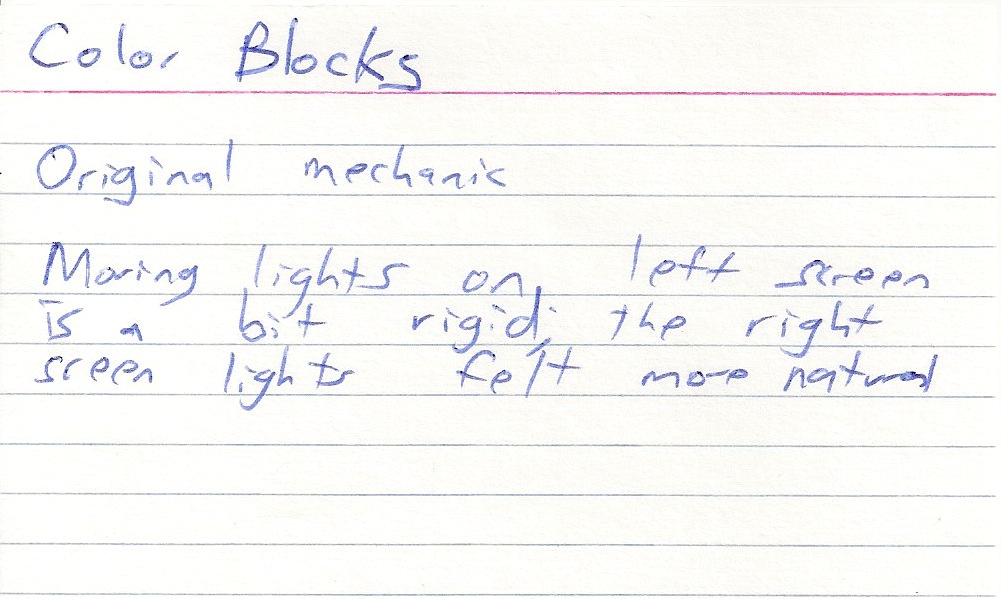 Color Blocks
Original mechanic
Moving lights on left screen
is a bit rigid; the right
screen lights felt more natural